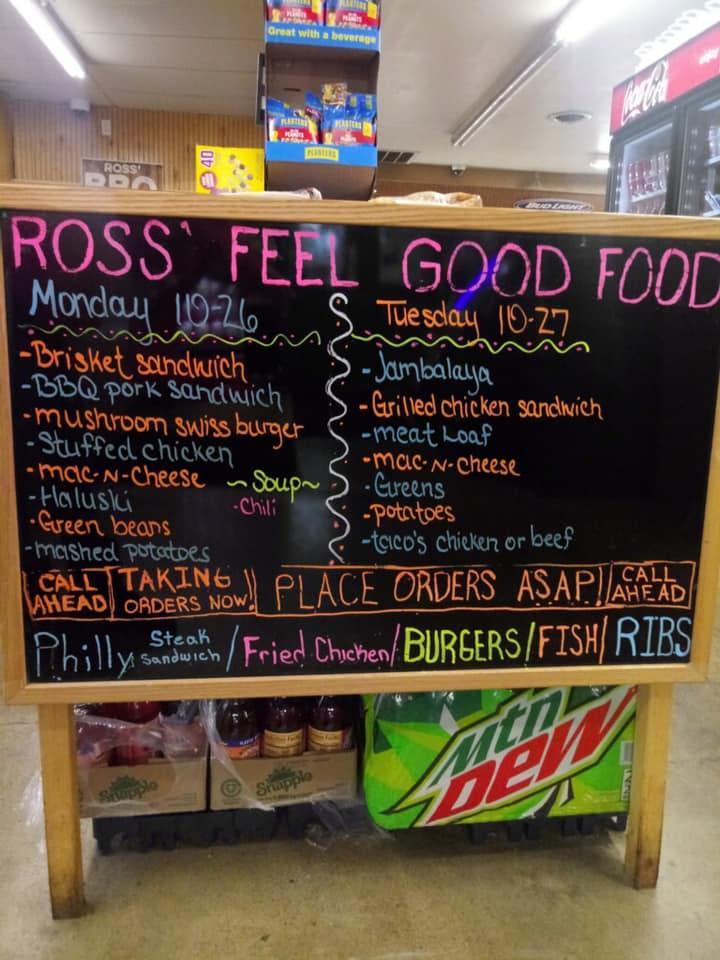 PLANTERS PEANUTS
PLANTERS PEANUTS
Great with a beverage
PLANTERS PEANUTS
PLANTERS PEANUTS
PLANTERS
Coca-Cola
ROSS'
BBQ
40
BUD LIGHT
ROSS' FEEL GOOD FOOD
Monday 10-26
-Brisket sandwich
-BBQ pork sandwich
-mushroom swiss burger
-Stuffed chicken
-mac-N-Cheese
-Haluski
-Green beans
-mashed potatoes
~Soup~
-Chili
Tuesday 10-27
-Jambalaya
-Grilled chicken sandwich
-meat Loaf
-mac-N-cheese
-Greens
-potatoes
-taco's chicken or beef
CALL AHEAD
TAKING ORDERS NOW!
PLACE ORDERS ASAP!
CALL AHEAD
Philly Steak Sandwich / Fried Chicken / BURGERS / FISH / RIBS
Snapple
Snapple
Mtn
Dew